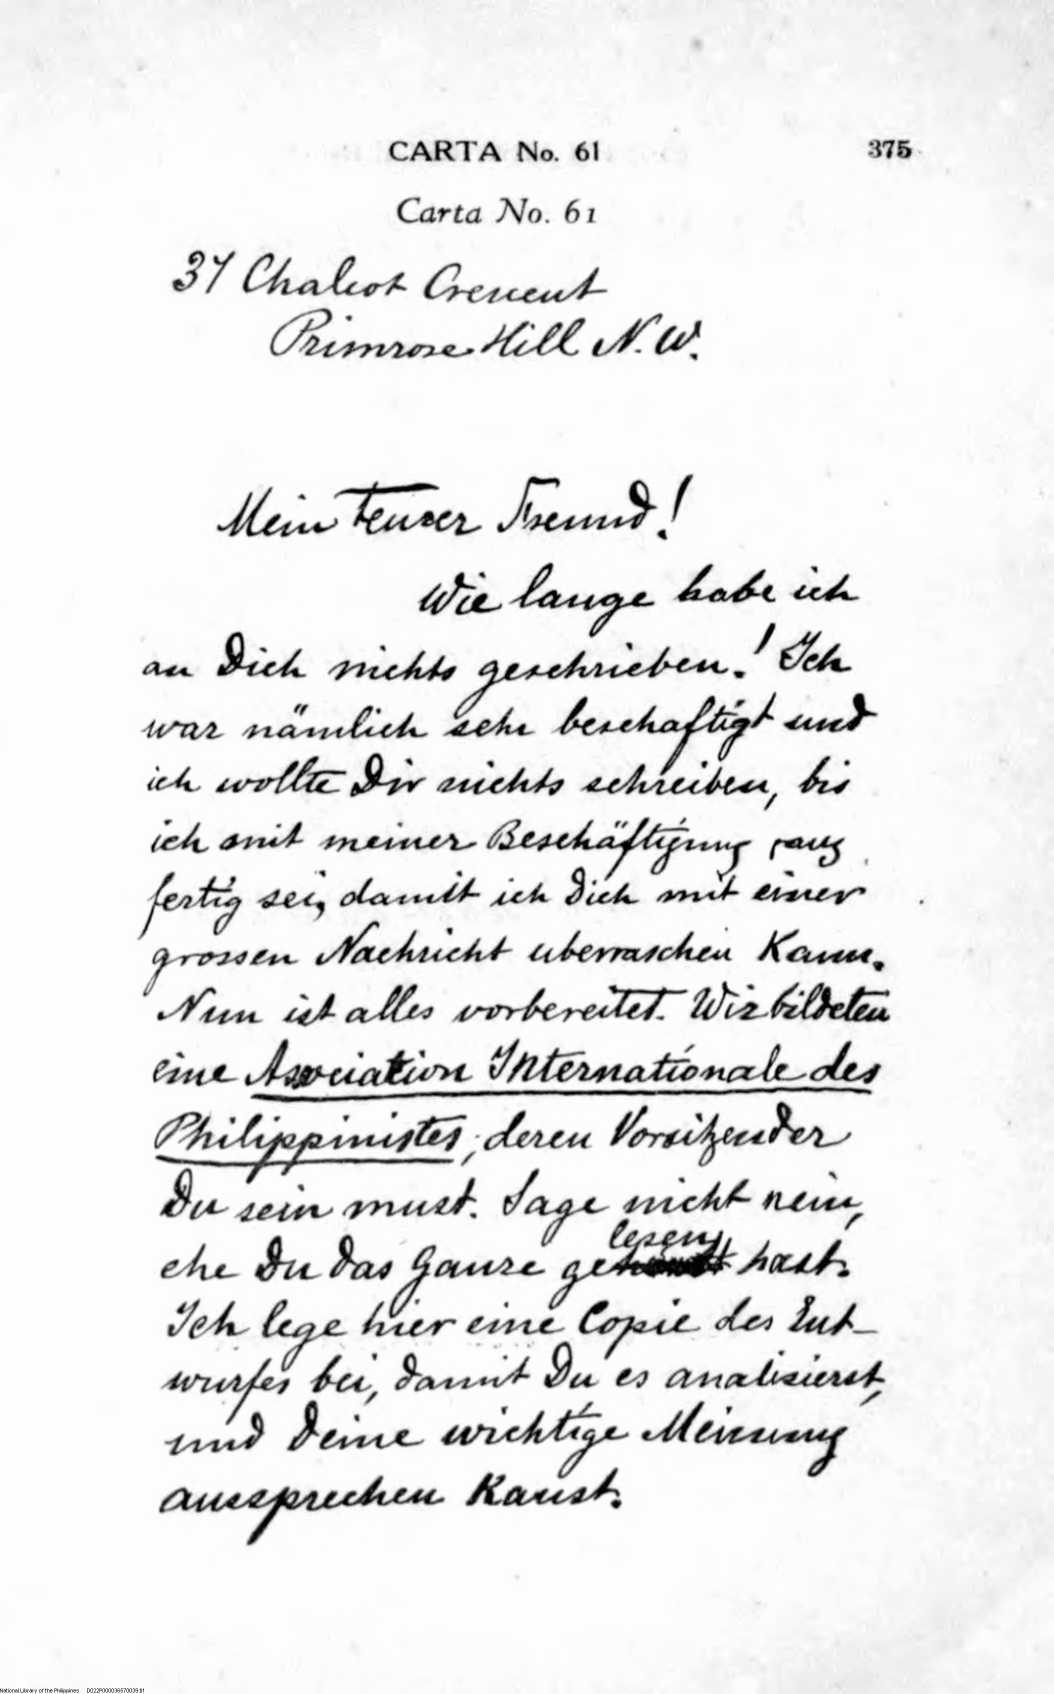 CARTA No. 61 375
Carta No. 61
37 Chalcot Crescent
Primrose Hill N. W.
Mein teurer Freund!
Wie lange habe ich
an Dich nichts geschrieben! Ich
war nämlich sehr beschaftigt und
ich wollte Dir nichts schreiben, bis
ich mit meiner Beschäftigung ganz
fertig sei, damit ich Dich mit einer
grossen Nachricht uberraschen Kann.
Nun ist alles vorbereitet. Wir bildeten
eine Association Internationale des
Philippinistes, deren Vorsitzender
Du sein must. Sage nicht nein,
ehe Du das Ganze gelesen hast.
Ich lege hier eine Copie des Ent-
wurfes bei, damit Du es analisierst,
und Deine wichtige Meinung
aussprechen Kanst.
National Library of the Philippines